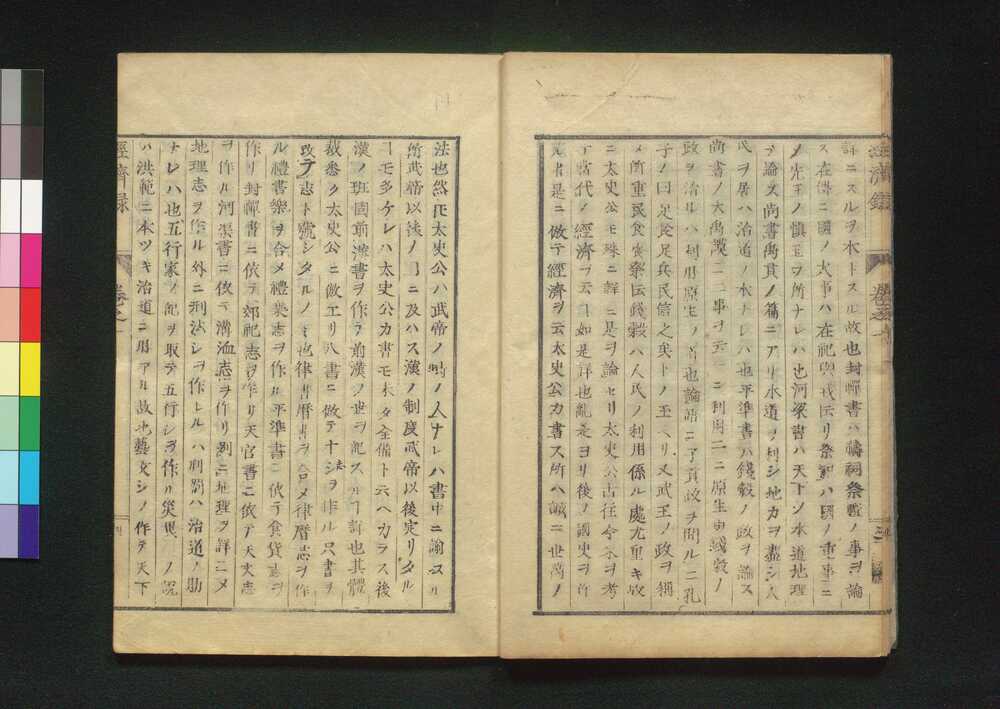 評ニスルヲ本トスル故也封禪書ハ禱祠祭戰ノ事ヲ論
ス在傳ニ國ノ大事ハ在祀與戎云リ祭祀ハ國ノ重事ニ
ノ先王ノ愼玉ヲ所ナレハ也河渠書ハ天下ノ水道地理
ヲ論ス尚書禹貢ノ篇ニアリ水道ヲ利シ地力ヲ盡シ人
民ヲ居ハ治道ノ本トレハ也平準書ハ錢穀ノ政ヲ論ス
尚書ノ大禹謨ニ三事ヲ云ニ利用ニ厚生ハ錢穀ノ
政ヲ治ルハ利用厚生ノ道也論語ニ子貢政ヲ問ルニ孔
子ノ曰足食足兵民信之矣トノ玉ヘリ又武王ノ政ヲ稱
メ所重民食喪祭云錢穀ハ人民ノ利用係ル處尤重キ故
ニ太史公モ殊ニ詳ニ是ヲ論セリ太史公古往今來ヲ考
テ古代ノ經濟ヲ云コ如是詳也亂是ヨリ後ノ國史ヲ作
ル者是ニ倣テ經濟ヲ云太史公カ書ス所ハ誠ニ世萬ノ
經濟錄
法也然圧太史公ハ武帝ノ時ノ人ナレハ書中ニ諭スル
所武帝以後ノコニ及ハス漢ノ制度武帝以後定リタル
コモ多ケレハ太史公カ書モ未タ全備ト云ヘカラス後
漢ノ班固前漢書ヲ作テ前漢ノ世ヲ記スルコ詳也其體
裁悉ク太史公ニ倣エリ八書ニ倣テ十志ヲ作ル只書ヲ
攺テ志ト號シタルノミ也律書曆書ヲ合メ律曆志ヲ作
ル禮書樂ヲ合メ禮樂志ヲ作ル平準書ニ依テ食貨志ヲ
作リ封禪書ニ依テ郊祀志ヲ作リ天官書ニ依テ天文志
ヲ作ル河渠書ニ依テ溝洫志ヲ作リ別ニ地理ヲ詳ニメ
地理志ヲ作ル外ニ刑法シヲ作レルハ刑罰ハ治道ノ助
ナレハ也五行家ノ記ヲ取テ五行シヲ作ル災異ノ説
ハ洪範ニ本ツキ治道ニ用アル故也藝文シノ作テ天下
經濟錄